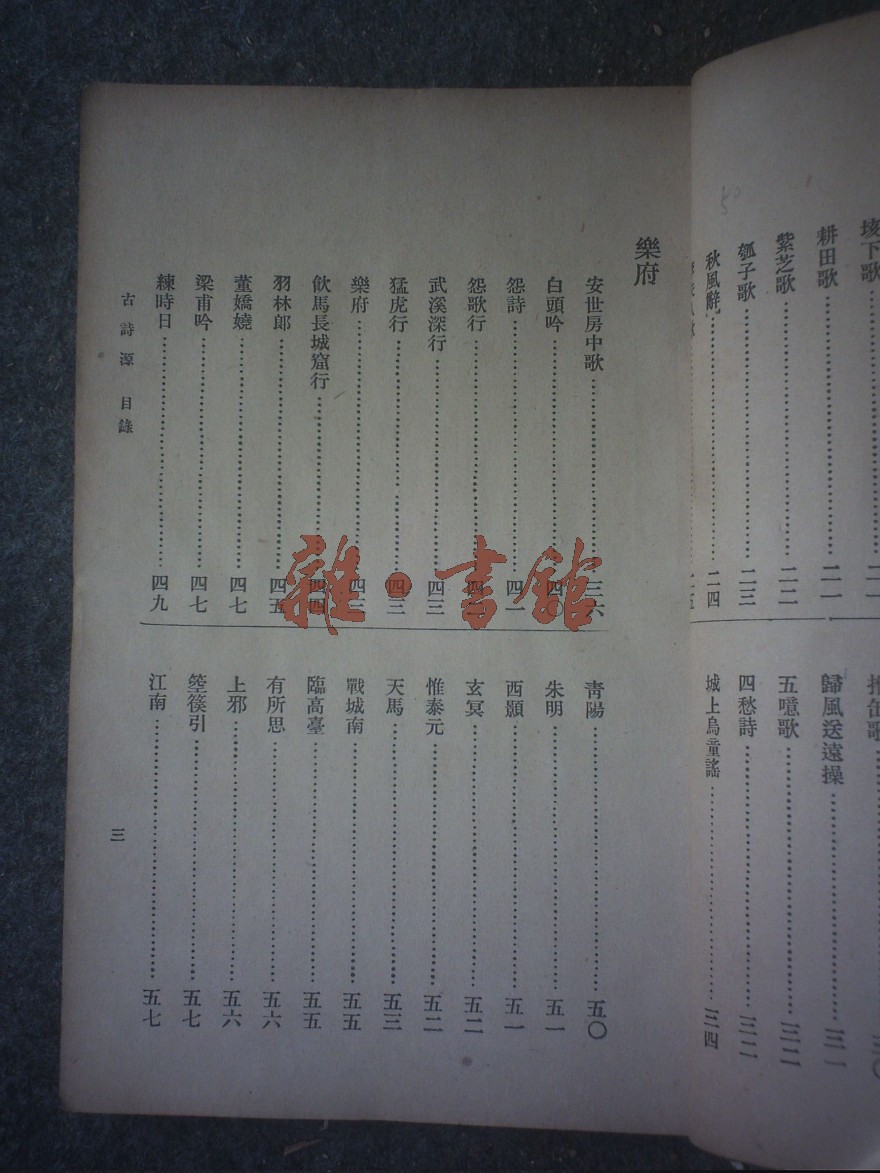 垓下歌……二一
耕田歌……二一
紫芝歌……二二
瓠子歌……二三
秋風辭……二四
歸風送遠操……三一
五噫歌……三二
四愁詩……三二
城上烏童謠……三四
樂府
安世房中歌……三六
白頭吟
怨詩……四一
怨歌行
武溪深行……四三
猛虎行……四三
樂府
飲馬長城窟行……四四
羽林郎……四五
董嬌嬈……四七
梁甫吟……四七
練時日……四九
青陽……五〇
朱明……五一
西顥……五一
玄冥……五二
惟泰元……五二
天馬……五三
戰城南……五五
臨高臺……五五
有所思……五六
上邪……五六
箜篌引……五七
江南……五七
古詩源 目錄
三
雜·書館